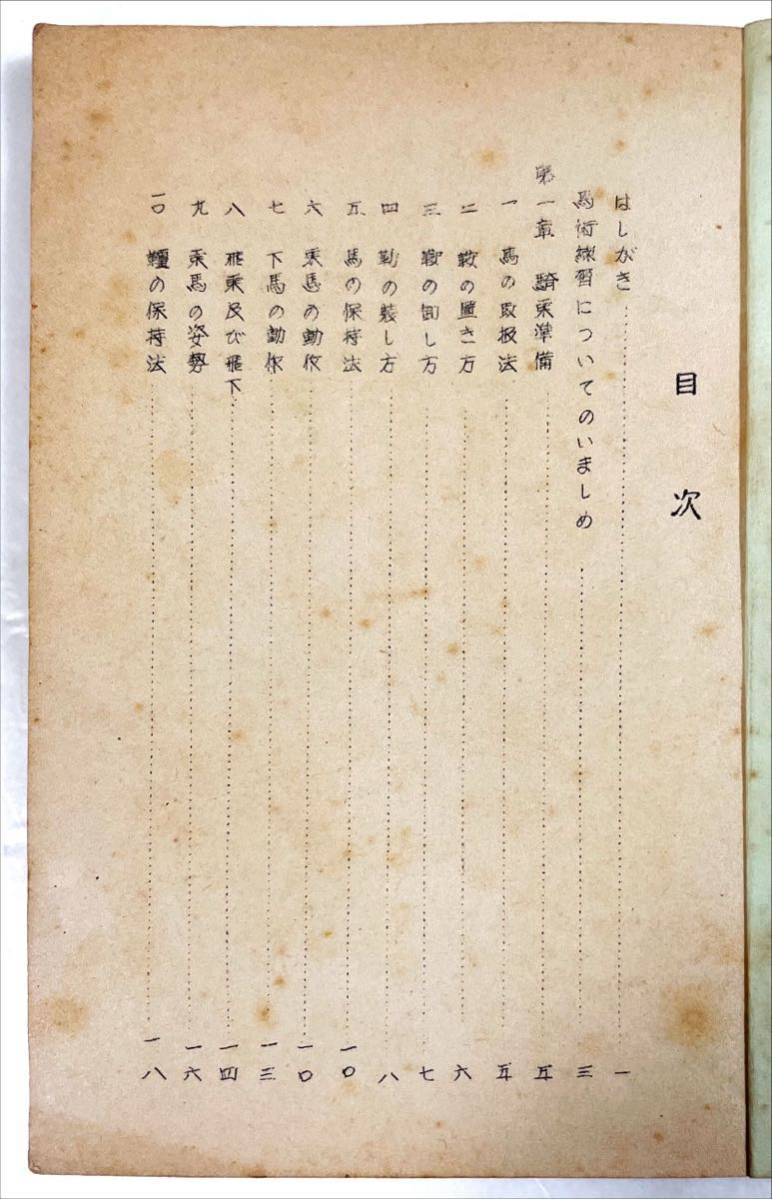 目次
はしがき……………………一
馬術練習についてのいましめ……………………三
第一章 騎乗準備……………………五
一 馬の取扱法……………………五
二 鞍の置き方……………………六
三 鞍の卸し方……………………七
四 勒の装し方……………………八
五 馬の保持法……………………一〇
六 乗馬の動作……………………一〇
七 下馬の動作……………………一三
八 飛乗及び飛下……………………一四
九 乗馬の姿勢……………………一六
一〇 韁の保持法……………………一八